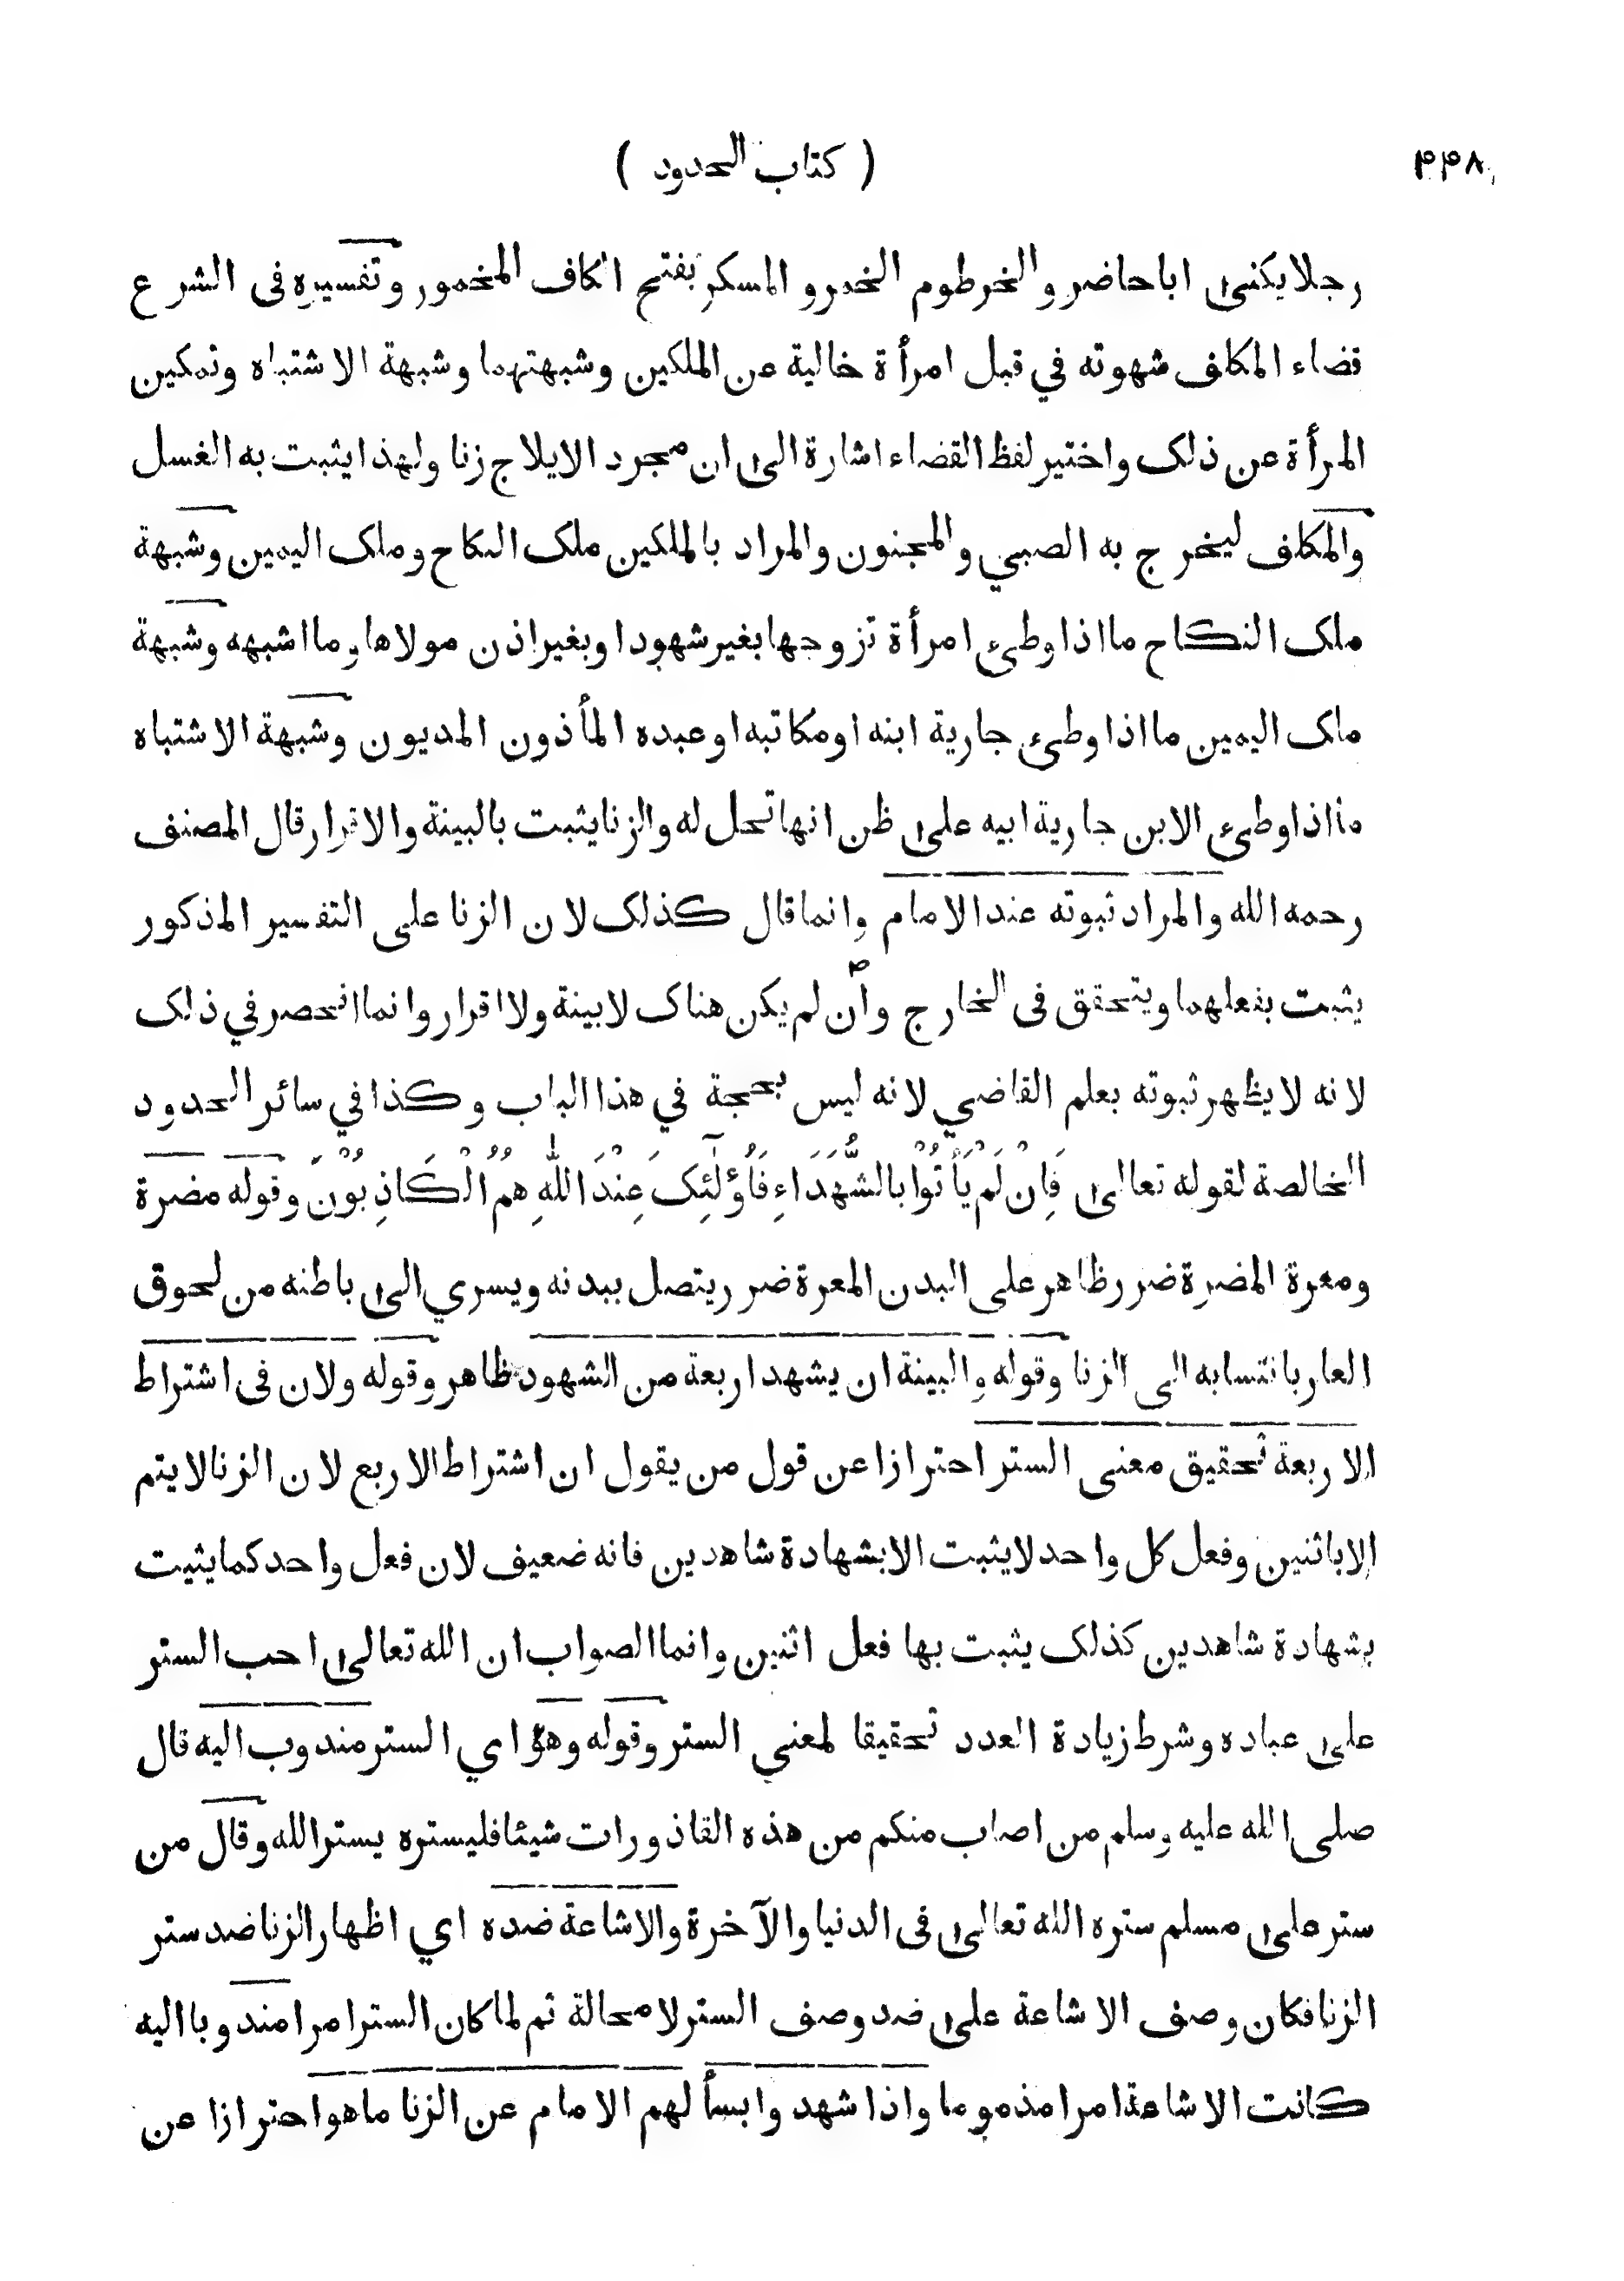 ۴۴۸
( كتاب الحدود )
رجلا يكنى ابا حاضر والخرطوم الخمر و المسكر بفتح الكاف المخمور وتفسيره فى الشرع
قضاء المكلف شهوته في قبل امرأة خالية عن الملكين وشبهتهما وشبهة الاشتباه وتمكين
المرأة عن ذلك واختير لفظ القضاء اشارة الى ان مجرد الايلاج زنا ولهذا يثبت به الغسل
والمكلف ليخرج به الصبي والمجنون والمراد بالملكين ملك النكاح وملك اليمين وشبهة
ملك النكاح ما اذا وطئ امرأة تزوجها بغير شهود او بغير اذن مولاها وما اشبهه وشبهة
ملك اليمين ما اذا وطئ جارية ابنه او مكاتبه او عبده المأذون المديون وشبهة الاشتباه
ما اذا وطئ الابن جارية ابيه على ظن انها تحل له والزنا يثبت بالبينة والاقرار قال المصنف
رحمه الله والمراد ثبوته عند الامام وانما قال كذلك لان الزنا على التفسير المذكور
يثبت بفعلهما ويتحقق فى الخارج وان لم يكن هناك لا بينة ولا اقرار وانما انحصر في ذلك
لانه لا يظهر ثبوته بعلم القاضي لانه ليس بحجة في هذا الباب وكذا في سائر الحدود
الخالصة لقوله تعالى فَاِنْ لَمْ يَأْتُوْا بِالشُّهَدَاءِ فَاُوْلٰٓئِكَ عِنْدَ اللّٰهِ هُمُ الْكَاذِبُوْنَ وقوله مضرة
ومعرة المضرة ضرر ظاهر على البدن المعرة ضرر يتصل ببدنه ويسري الى باطنه من لحوق
العار بانتسابه الى الزنا وقوله والبينة ان يشهد اربعة من الشهود ظاهر وقوله ولان فى اشتراط
الاربعة تحقيق معنى الستر احترازا عن قول من يقول ان اشتراط الاربع لان الزنا لا يتم
الا باثنين وفعل كل واحد لا يثبت الا بشهادة شاهدين فانه ضعيف لان فعل واحد كما يثبت
بشهادة شاهدين كذلك يثبت بها فعل اثنين وانما الصواب ان الله تعالى احب الستر
على عباده وشرط زيادة العدد تحقيقا لمعنى الستر وقوله وهو اي الستر مندوب اليه قال
صلى الله عليه وسلم من اصاب منكم من هذه القاذورات شيئا فليستره يستر الله وقال من
ستر على مسلم ستره الله تعالى فى الدنيا والآخرة والاشاعة ضده اي اظهار الزنا ضد ستر
الزنا فكان وصف الاشاعة على ضد وصف الستر لا محالة ثم لما كان الستر امرا مندوبا اليه
كانت الاشاعة امرا مذموما واذا شهدوا يسألهم الامام عن الزنا ما هو احترازا عن